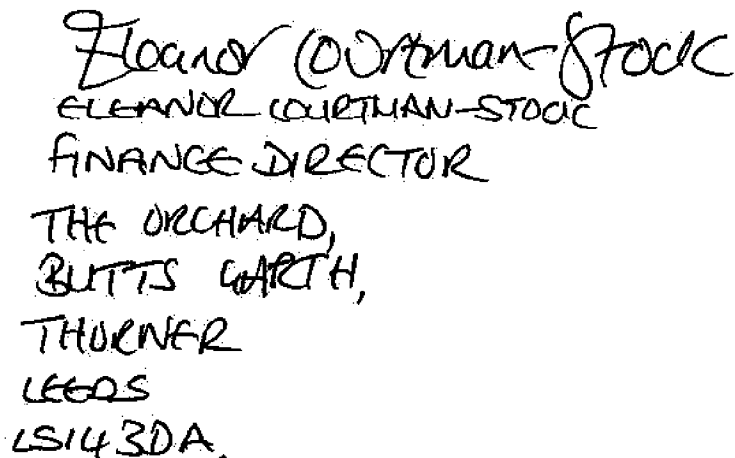 Eleanor Courtman-Stock
ELEANOR COURTMAN-STOCK
FINANCE DIRECTOR
THE ORCHARD,
BUTTS GARTH,
THORNER
LEEDS
LS14 3DA.